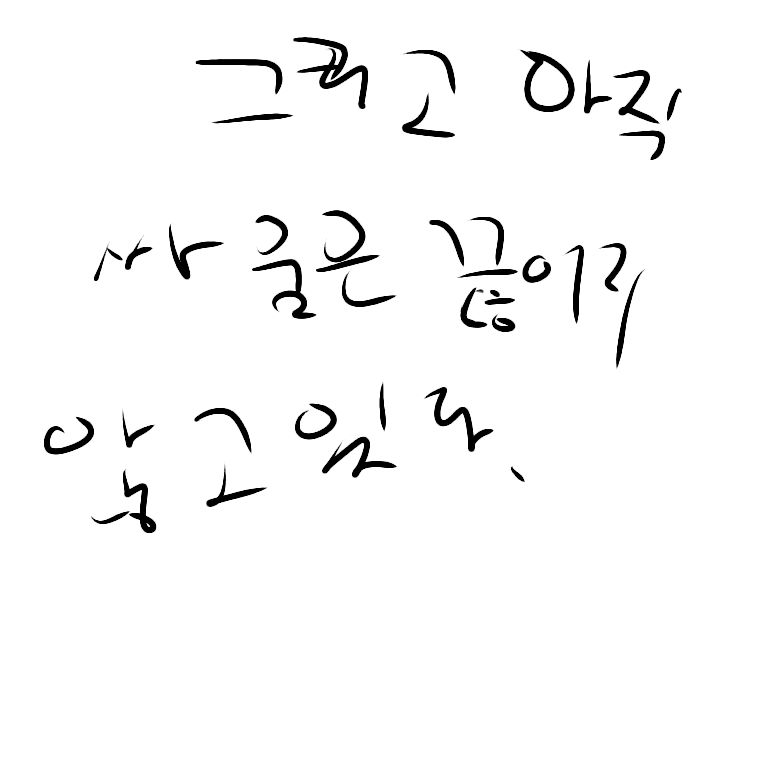 그리고 아직
싸움은 끊이지
않고 있다.